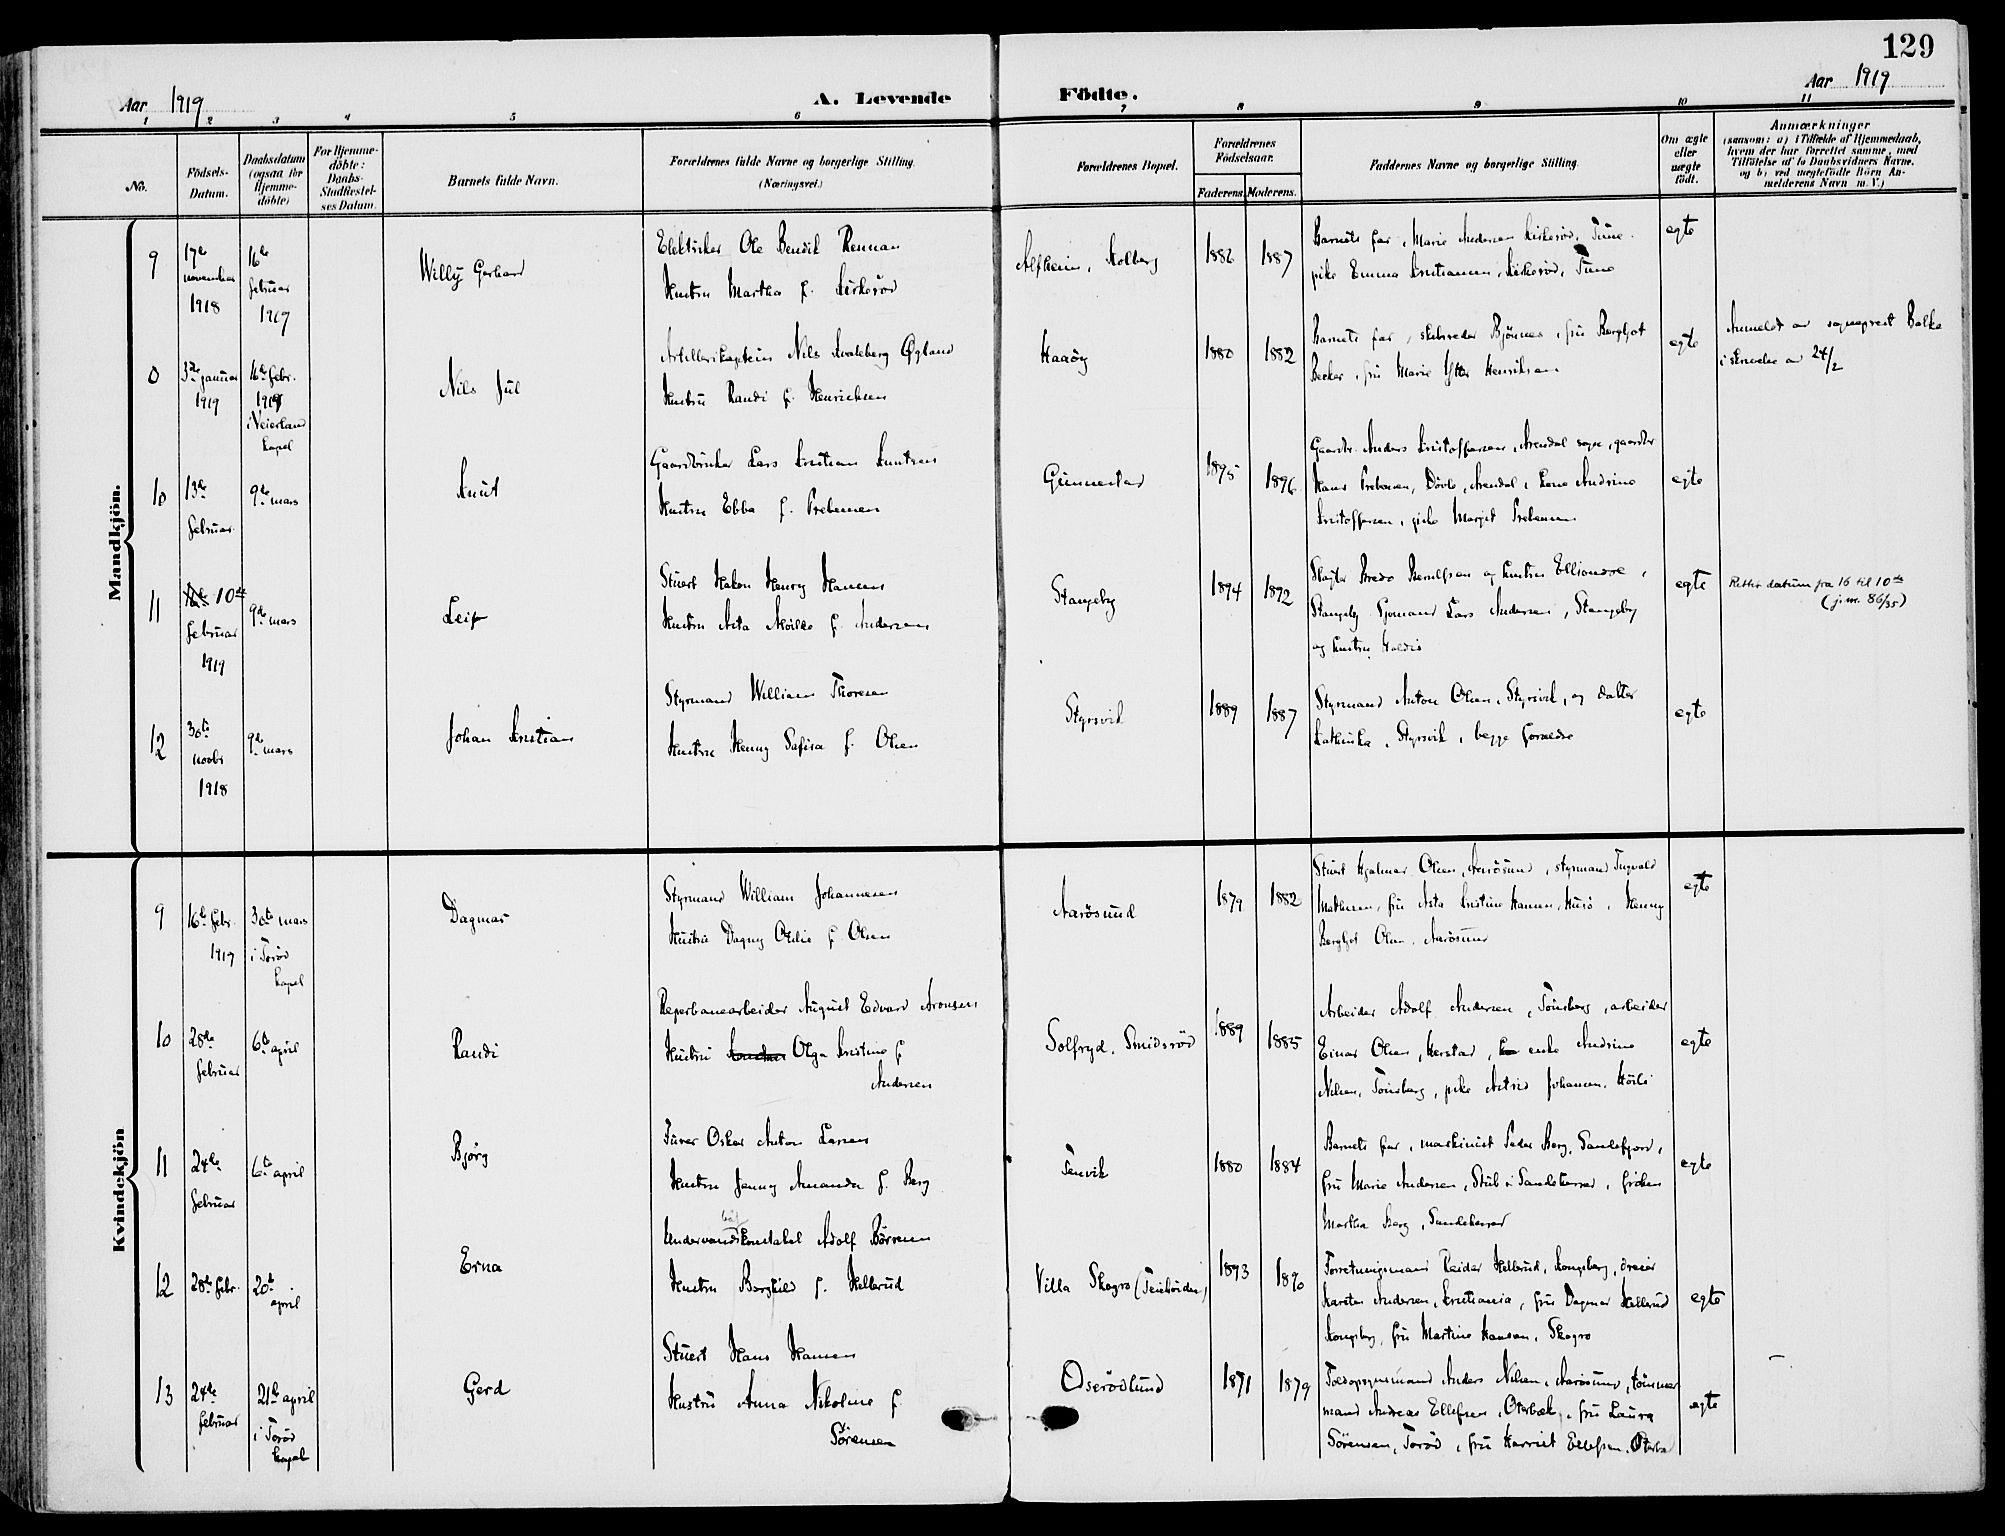 129
Aar 1919
A. Levende Födte.
Aar 1919
1 2 3 4 5 6 7 8 9 10 11
No.
Födsels-Datum.
Daabsdatum (ogsaa for Hjemme-döbte)
For Hjemme-döbte: Daabs-Stadfæstel-ses Datum.
Barnets fulde Navn.
Forældrenes fulde Navne og borgerlige Stilling. (Næringsvei.)
Forældrenes Bopæl.
Forældrenes Födselsaar.
Faderens. Moderens.
Faddernes Navne og borgerlige Stilling.
Om ægte eller uægte födt.
Anmærkninger
(saasom: a) i Tilfælde af Hjemmedaab, hvem der har forrettet samme, med Tilföielse af to Daabsvidners Navne, og b) ved uægtefödte Börn Anmelderens Navn m. V.)
Mandkjön.
9 17de november 1918
16de februar 1919
Willy Gerhard
Elektriker Ole Bendik Rennan
Hustru Martha f. Kirkerød
Alfheim, Kolberg
1886 1887
Barnets far, Marie Andersen Kirkerød, Tune
pike Emma Kristiansen, Kirkerød, Tune
egte
0 3die januar 1919
16de febr. 1919 i Veierland kapel
Nils Jul
Artillerikaptein Nils Øgland
Hustru Randi f. Henrichsen
Haaøy
1880 1882
Barnets far, skibsreder Bjønnes, fru Bergljot
Becker, fru Marie Henriksen
egte
Anmeldt av sogneprest Balke
i skrivelse av 24/2
10 13de februar
9de mars
Knut
Gaardbruker Lars Kristian Knutsen
Hustru Ebba f. Prebensen
Gunnestad
1895 1896
Gaardbr. Anders Kristoffersen, Arendal sogn, gaardbr
Hans Prebensen, Arendal, Andrine
Kristoffersen, pike Margit Prebensen
egte
11 10de februar 1919
9de mars
Leif
Stuert Hakon Henry Hansen
Hustru Asta f. Andersen
Stangeby
1894 1892
og hustru
Stangeby Sjømand Lars Andersen, Stangeby
og hustru Valdis
egte
Rettet datum fra 16 til 10de
(j.nr. 86/35)
12 30te novbr 1918
9de mars
Johan Kristian
Styrmand William Thoresen
Hustru Henny Safira f. Olsen
Styrsvik
1889 1887
Styrmand Anton Olsen, Styrsvik, og datter
Kathinka, Styrsvik, begge forældre
egte
Kvindekjön
9 16de febr. 1919
30te mars i Torød kapel
Dagmar
Styrmand William Johannesen
Hustru Dagny Otilie f. Olsen
Aarøsund
1879 1882
Stuert Hjalmar Olsen, Aarøsund, styrmand Ingvald
Mathisen, fru Asta Kristine Hansen, Husø, Henny
Bergljot Olsen, Aarøsund
egte
10 28de februar
6te april
Randi
Reperbanearbeider August Edvard Aronsen
Hustru Olga Kristine f.
Andersen
Solfryd, Smidsrød
1889 1885
Arbeider Adolf Andersen, Tønsberg, arbeider
Einar Olsen, Herstad, enke Andrine
Nilsen, Tønsberg, pike Astrid Johansen,
egte
11 24de februar
6te april
Bjørg
Furer Oskar Anton Larsen
Hustru Jenny Amanda f. Berg
Tenvik
1880 1884
Barnets far, maskinist Peder Berg, Sandefjord,
fru Marie Andersen, Stub i Sandeherred, frøken
Martha Berg, Sandeherred
egte
12 28de febr.
20de april
Erna
Undervandsbåtkonstabel Adolf Børresen
Hustru Borghild f. Hellerud
Villa Skogro (Teiehöiden)
1893 1890
Forretningsmand Reidar Hellerud, Kongsberg, dreier
Karsten Andersen, Kristiania, fru Dagmar Hellerud
Kongsberg, fru Martine Hansen, Skogro
egte
13 24de februar
21de april i Torød kapel
Gerd
Stuert Hans Hansen
Hustru Anna Nikoline f.
Sørensen
Oserødlund
1871 1879
Toldopsynsmand Anders Nilsen, Aarøsund, tømmer
mand Andreas Ellefsen, Oterbæk, fru Laura
Sørensen, Torød, fru Harriet Ellefsen, Oterbæ
egte